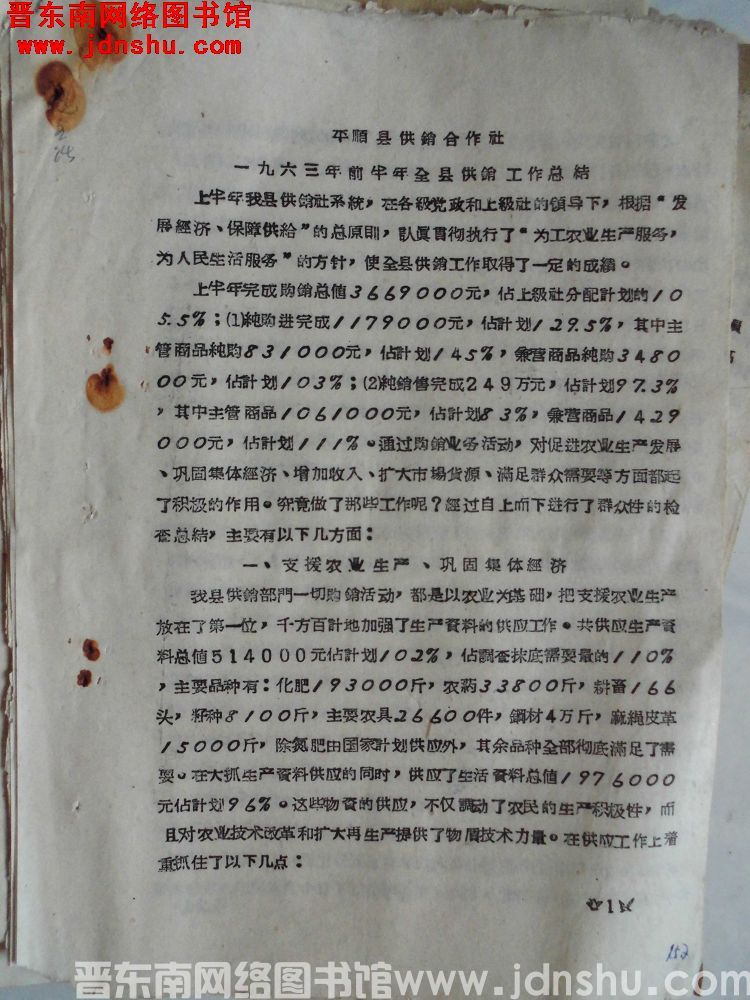 晋东南网络图书馆
www.jdnshu.com
平順县供銷合作社
一九六三年前半年全县供銷工作总結
上半年我县供銷社系統，在各級党政和上級社的領导下，根据“发
展經济、保障供給”的总原則，認眞貫彻执行了“为工农业生产服务，
为人民生活服务”的方針，使全县供銷工作取得了一定的成績。
上半年完成购銷总值3669000元，佔上級社分配計划的10
5.5%；(1)純购进完成1179000元，佔計划129.5%，其中主
管商品純购831000元，佔計划145%，兼营商品純购3480
00元，佔計划103%；(2)純銷售完成249万元，佔計划97.3%
，其中主管商品1061000元，佔計划83%，兼营商品1429
000元，佔計划111%。通过购銷业务活动，对促进农业生产发展
、巩固集体經济、增加收入、扩大市場貨源、滿足群众需要等方面都起
了积极的作用。究竟做了那些工作呢？經过自上而下进行了群众性的检
查总結，主要有以下几方面：
一、支援农业生产、巩固集体經济
我县供銷部門一切购銷活动，都是以农业为基础，把支援农业生产
放在了第一位，千方百計地加强了生产資料的供应工作。共供应生产資
料总值514000元佔計划102%，佔調查抹底需要量的110%
，主要品种有：化肥193000斤，农葯33800斤，耕畜166
头，籽种8100斤，主要农具26600件，鋼材4万斤，麻繩皮革
15000斤，除氮肥由国家計划供应外，其余品种全部彻底滿足了需
要。在大抓生产資料供应的同时，供应了生活資料总值1976000
元佔計划96%。这些物資的供应，不仅調动了农民的生产积极性，而
且对农业技术改革和扩大再生产提供了物质技术力量。在供应工作上着
重抓住了以下几点：
1
152
晋东南网络图书馆www.jdnshu.com